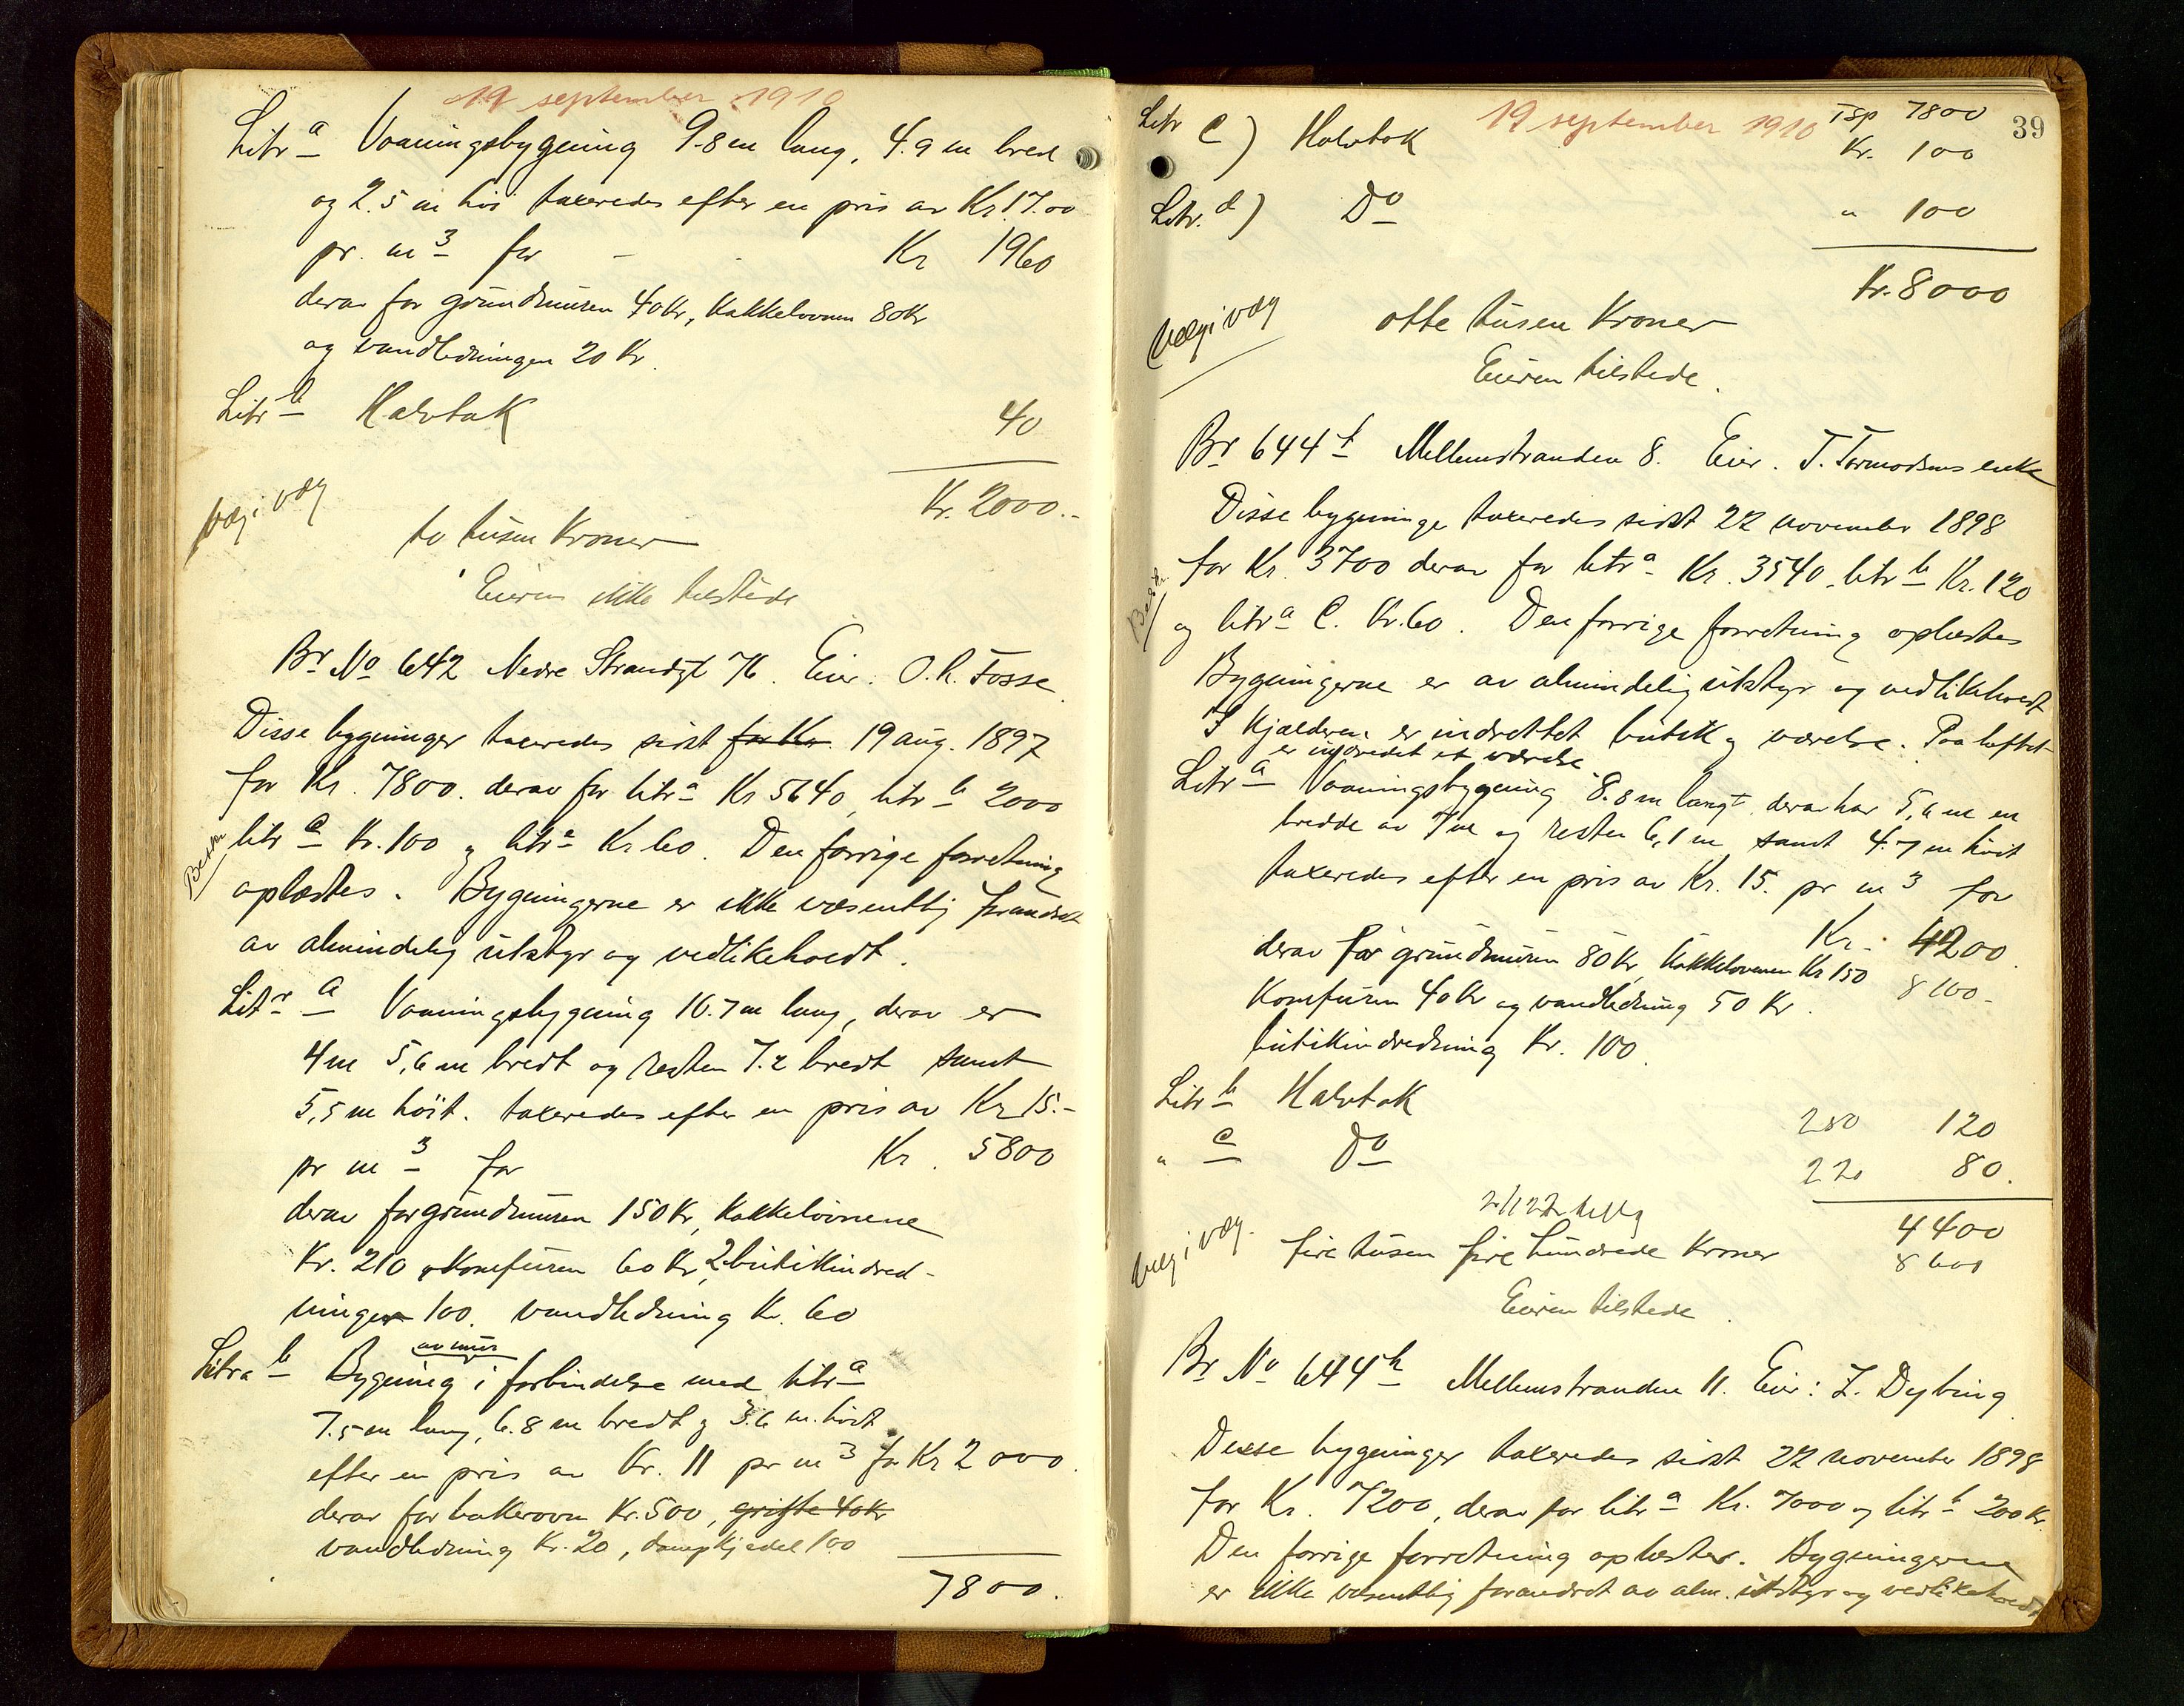 19 september 1910
Litr a Vaaningsbygning 9.8 m lang, 4.9 m bred
og 2.5 m høi taxeredes efter en pris av Kr. 17.00
pr. m3 for - - Kr 1960
derav for grundmuren 40 Kr, Kakkelovnen 80 Kr
og vandledningen 20 Kr.
Litr b Halvtak 40
Kr. 2000.-
to tusen Kroner
Eieren ikke tilstede
Br No 642 Nedre Strandgt 76. Eier: O. K. Fosse
Disse bygninger taxeredes sidst for Kr. 19 aug. 1897
for Kr. 7800. derav for litr a Kr 5640, litr b 2000
litr c Kr. 100 og litr a Kr 60. Den forrige forretning
oplæstes. Bygningerne er ikke væsentlig forandret
av almindelig utstyr og vedlikeholdt.
Litr a Vaaningsbygning 16.7 m lang, derav er
4 m 5,6 m bredt og resten 7.2 bredt samt
5,5 m høit. taxeredes efter en pris av Kr 15.-
pr m3 for Kr. 5800
derav for grundmuren 150 Kr, Kakkelovnene
Kr. 210 og Komfuren 60 Kr, 2 butikindred-
ninger 100. vandledning Kr. 60
av mur
Litra b Bygning i forbindelse med litr a
7.5 m lang, 6.8 m bredt og 3.6 m. høit
efter en pris av Kr. 11 pr m3 for Kr 2000.
derav for bakerovn Kr. 500, grifte 40 Kr
vandledning Kr. 20, dampkjedel 100
7800.
39
19 september 1910
Tsp 7800
Litr C) Halvtak Kr. 100
Litr. d) Do " 100
Kr. 8000
otte tusen Kroner
Eieren tilstede.
Br 644 f Mellemstranden 8. Eier. T. Tormodsens enke
Disse bygninger taxeredes sidst 22 november 1898
for Kr. 3700 derav for litr a Kr. 3540, litr b Kr. 120
og litr a C. Kr. 60. Den forrige forretning oplæstes
Bygningerne er av almindelig utstyr og vedlikeholdt
I Kjælderen er indrettet butik og værelse. Paa loftet
er indredet et værelse
Litr a Vaaningsbygning 8.8 m langt, derav har 5,6 m en
bredde av 7 m og resten 6,1 m samt 4.7 m høit
taxeredes efter en pris av Kr. 15. pr m3 for
Kr. 4200
derav for grundmuren 80 Kr, Kakkelovnen Kr 150 8100-
Komfuren 40 Kr og vandledning 50 Kr.
butikindredning Kr. 100
Litr b Halvtak 280 120
" c Do 220 80.
4400
fire tusen fire hundrede Kroner 8600
Eieren tilstede.
Br No 644 h Mellemstranden 11. Eier: Z. Dybing
Disse bygninger taxeredes sidst 22 november 1898
for Kr. 7200, derav for litr a Kr. 7000 og litr b 200 Kr.
Den forrige forretning oplæstes. Bygningerne
er ikke væsentlig forandret av alm. utstyr og vedlikeholdt